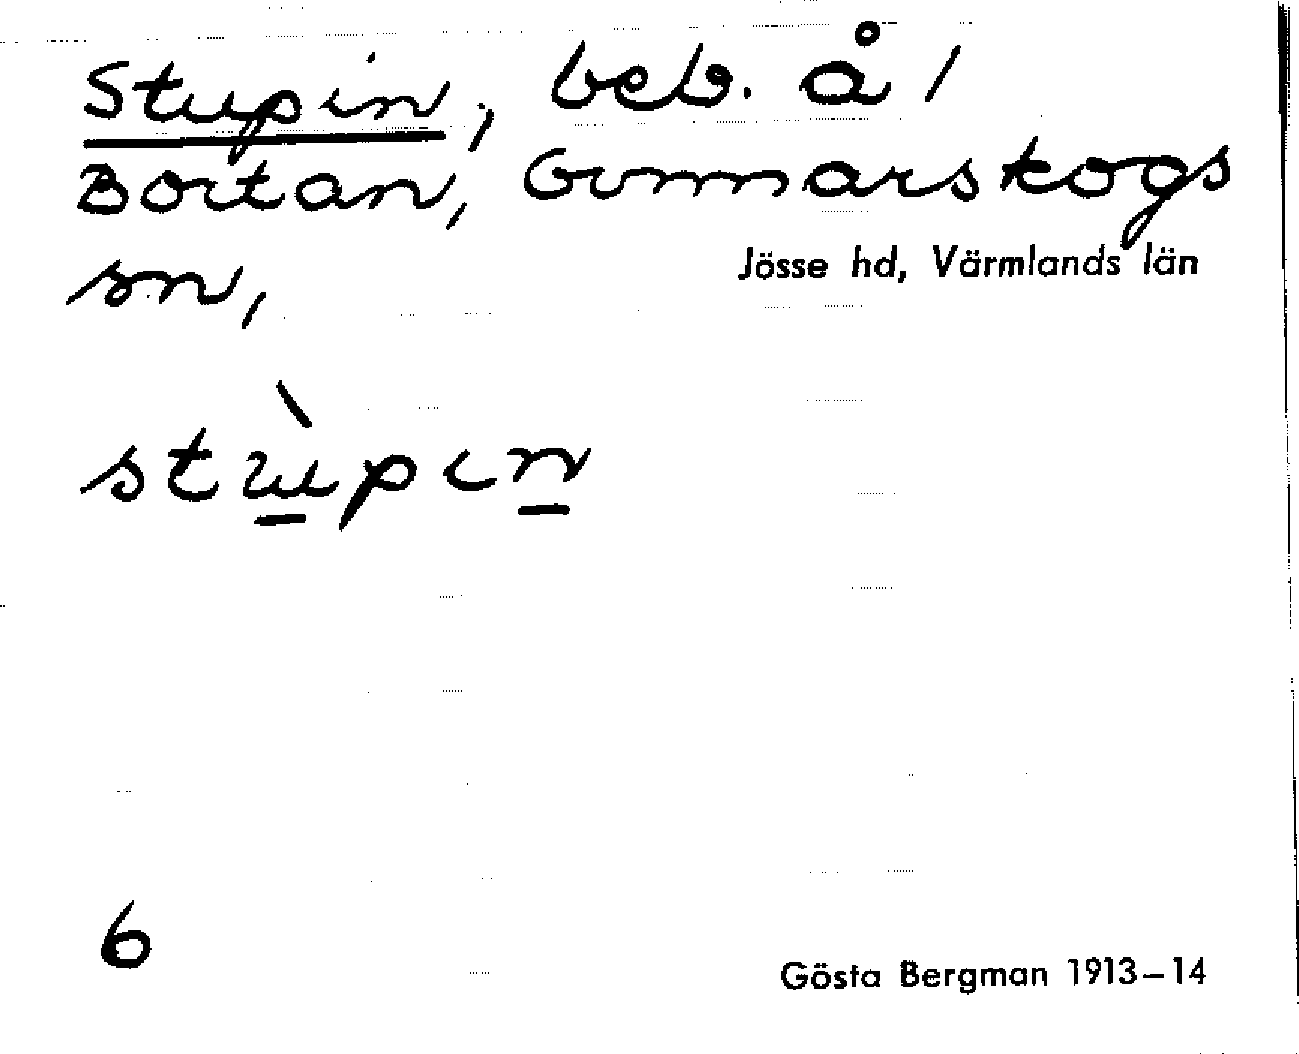 Stupin, beb. å /
Bortan, Gunnarskogs
sn, Jösse hd, Värmlands län
stùpın
6
Gösta Bergman 1913–14